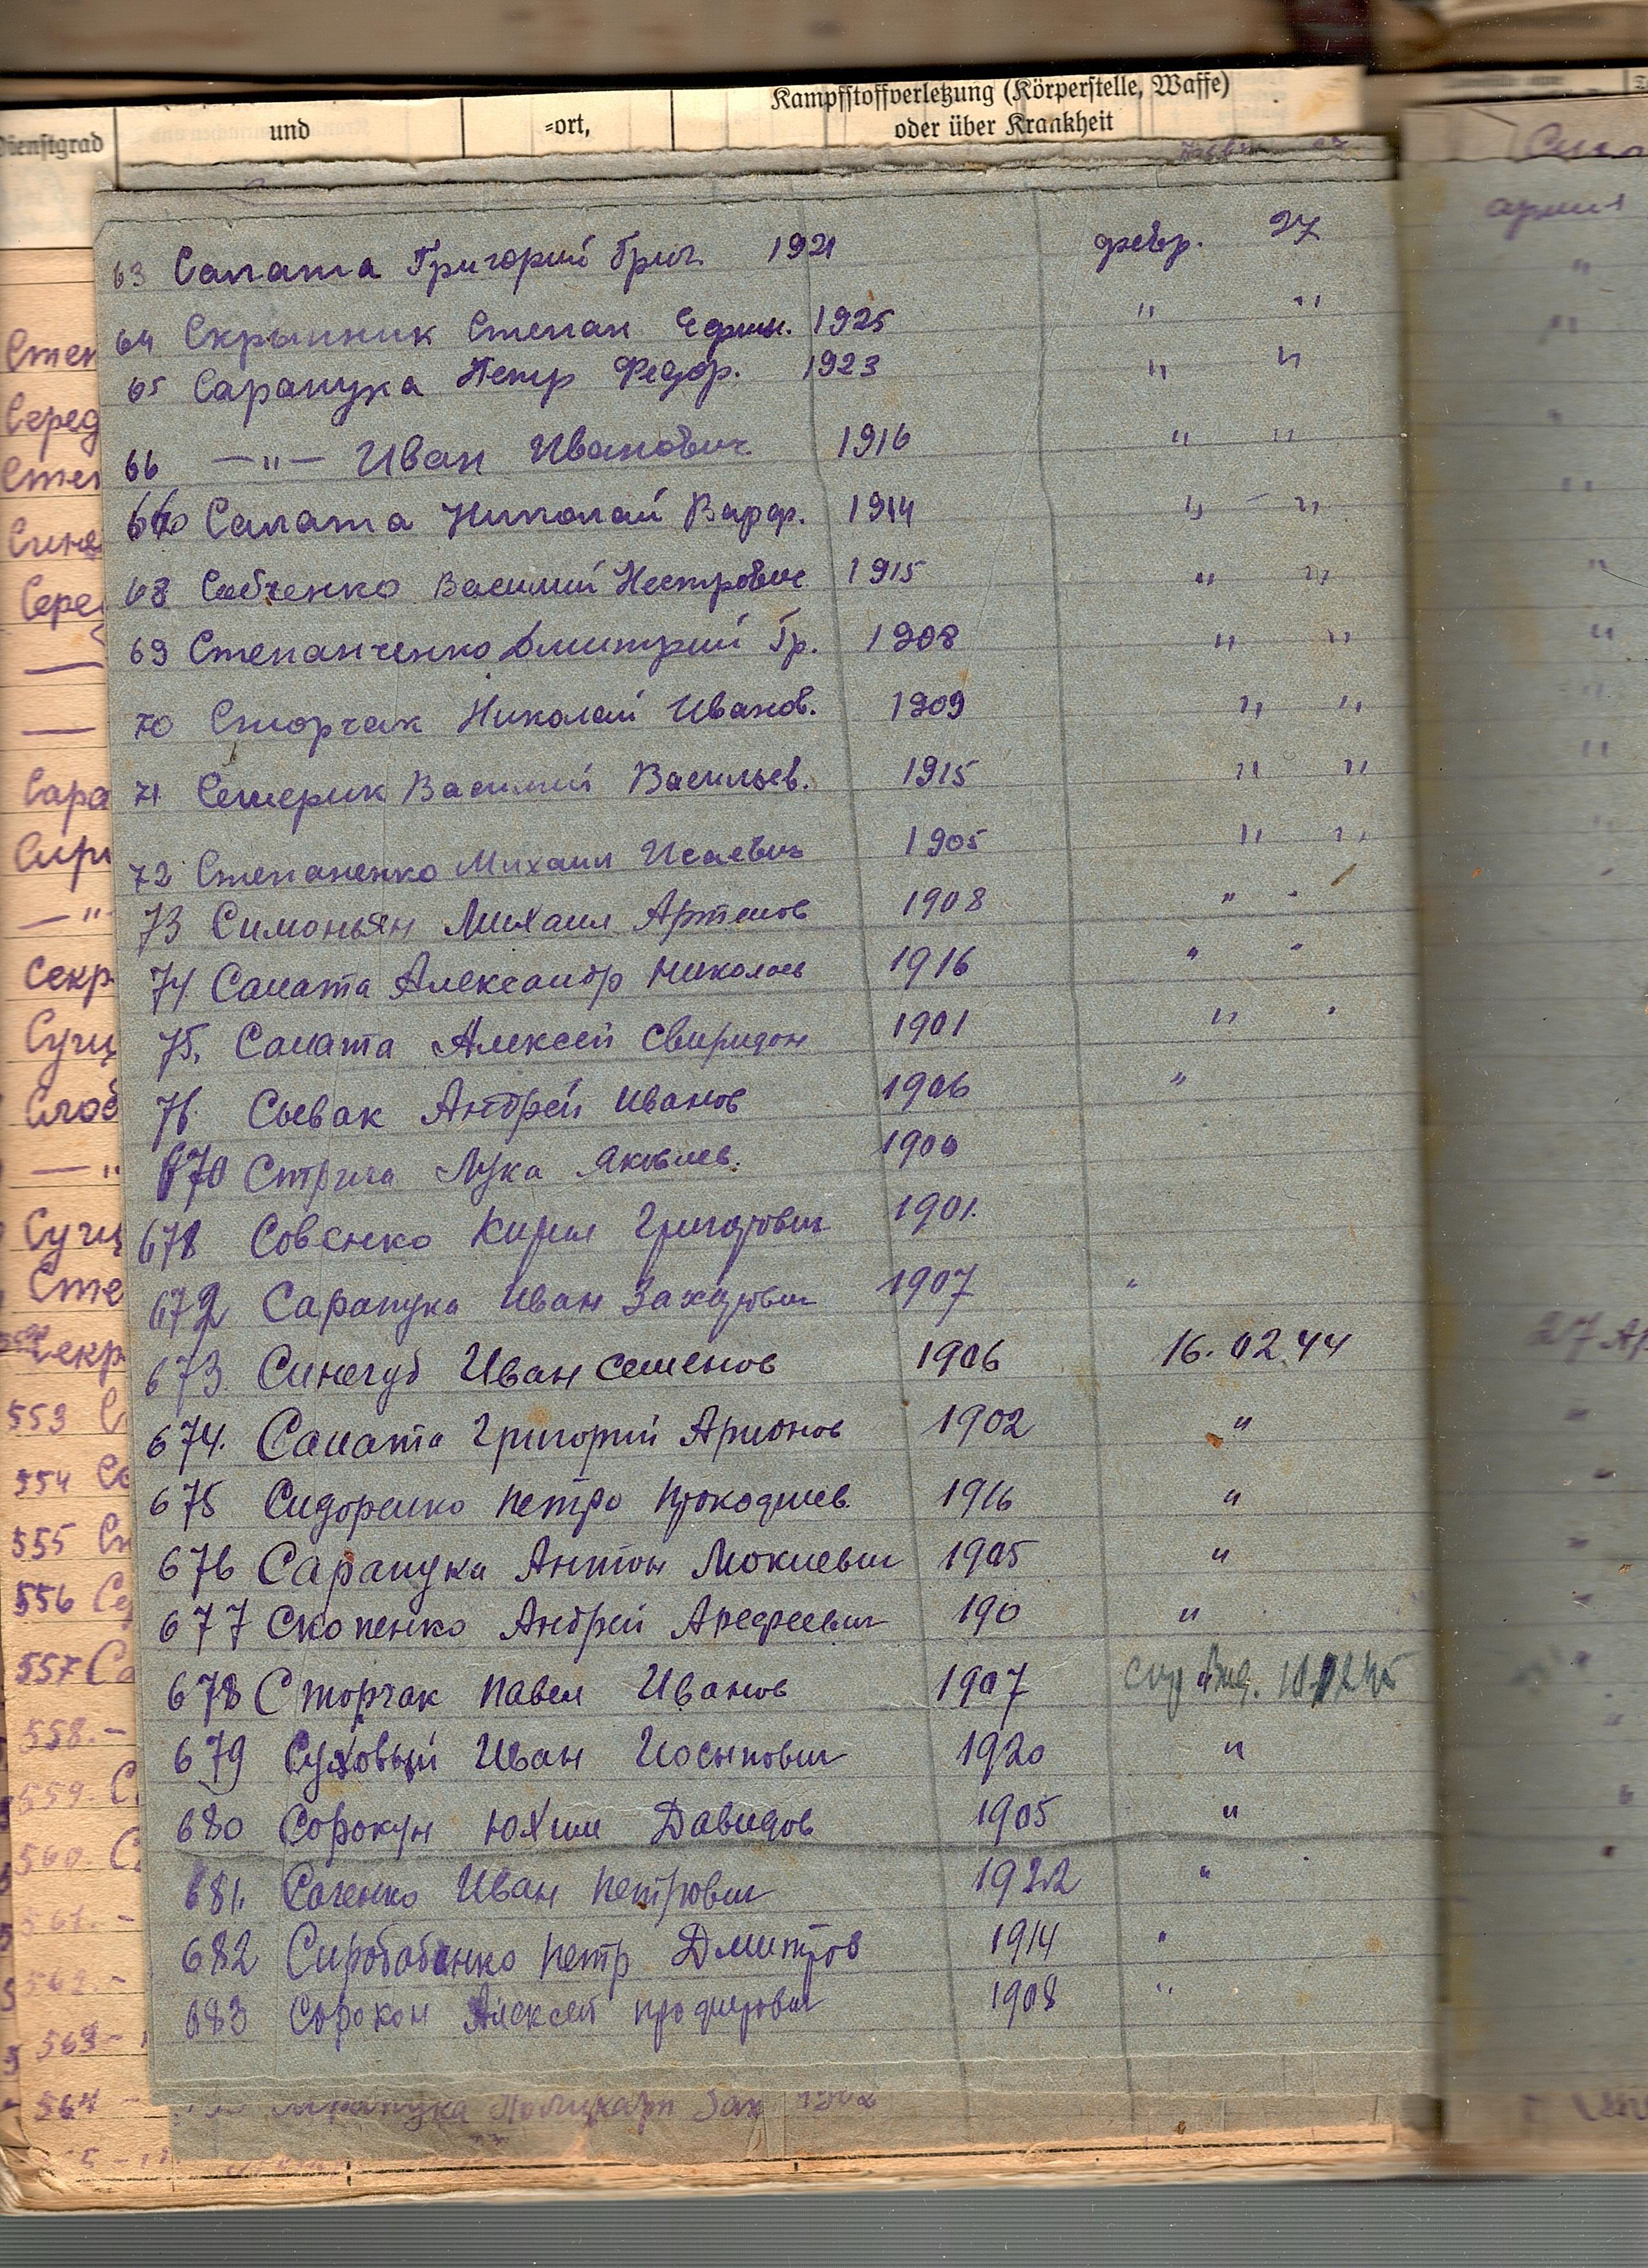 Kampfstoffverletzung (Körperstelle, Waffe)
Dienstgrad und =ort, oder über Krankheit
63 Салата Григорий Григ. 1921 февр. 27
64 Скрынник Степан Ефим. 1925 " "
65 Сарапука Петр Федор. 1923 " "
66 —"— Иван Иванович 1916 " "
Салата Николай Варф. 1914 " - "
68 Савченко Василий Нестрович 1915 " "
69 Степанченко Дмитрий Гр. 1908 " "
70 Сторчак Николай Иванов. 1909 " "
71 Семерик Василий Васильев. 1915 " "
72 Степаненко Михаил Исаевич 1905 " "
73 Симоньян Михаил Артемов 1908 " "
74. Салата Александр Николаев 1916 " "
75. Салата Алексей Свиридон 1901 " "
76. Сьевак Андрей Иванов 1906 "
670 Стрига Лука Яковлев. 1900
678 Совенко Кирил Григорович 1901.
672 Сарапука Иван Захарович 1907 "
673. Синегуб Иван Семенов 1906 16.02.44
674. Салата Григорий Арионов 1902 "
675 Сидоренко Петро Прокофиев. 1916 "
676 Сарапука Антон Мокиевич 1905 "
677 Скопенко Андрей Арефеевич 190 "
678 Сторчак Павел Иванов 1907 "
679 Суховый Иван Иосипович 1920 "
680 Сорокун Юхим Давидов 1905 "
681. Саченко Иван Петрович 1922 "
682 Сиробабенко Петр Дмитров 1914 "
683 Сорокон Алексей 1908 "
Степ
Серед
Степ
Синя
Сере
Сара
Сири
—"
Секр
Сущ
Слоб
—"
Сущ
Сте
553
554 Са
555
556 Се
557 Са
558. -
559. С
560. С
561. -
562 -
563 -
564 -
апреля
27 Ап